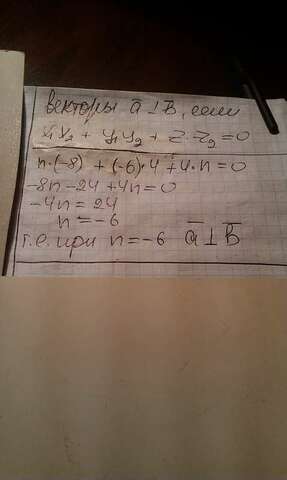 векторы a ⊥ B, если
x₁x₂ + y₁y₂ + z₁z₂ = 0
n·(-8) + (-6)·4 + 4·n = 0
-8n - 24 + 4n = 0
-4n = 24
n = -6
т.е. при n = -6 a̅ ⊥ B̅